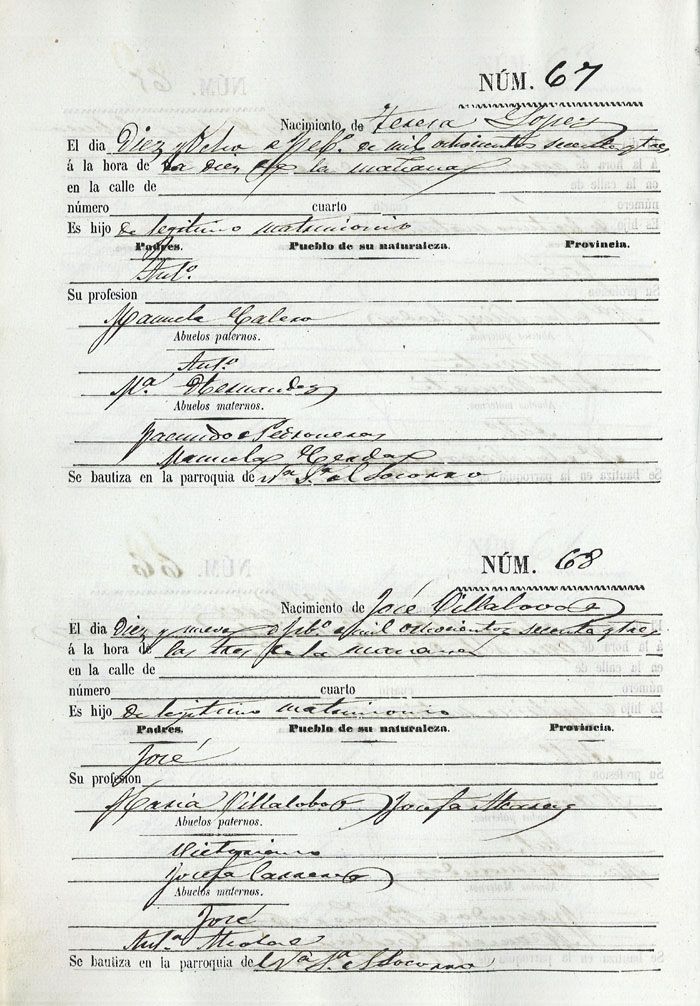 NÚM. 67
Nacimiento de Teresa Lopez
El dia Diez y Ocho de Feb.º de mil ochocientos sesenta y tres
á la hora de la diez de la mañana
en la calle de
número cuarto
Es hijo de legitimo matrimonio
Padres. Pueblo de su naturaleza. Provincia.
Ant.º
Su profesion
Manuela Calero
Abuelos paternos.
Ant.º
M.ª Hernandez
Abuelos maternos.
Manuela
Se bautiza en la parroquia de N.ª S.ª del Socorro
NÚM. 68
Nacimiento de José Villalobos
El dia Diez y nueve de Feb.º de mil ochocientos sesenta y tres
á la hora de las tres de la mañana
en la calle de
número cuarto
Es hijo de legitimo matrimonio
Padres. Pueblo de su naturaleza. Provincia.
José
Su profesion
Maria Villalobos Josefa
Abuelos paternos.
Victoriano
Josefa Carrero
Abuelos maternos.
José
Ant.ª
Se bautiza en la parroquia de N.ª S.ª del Socorro